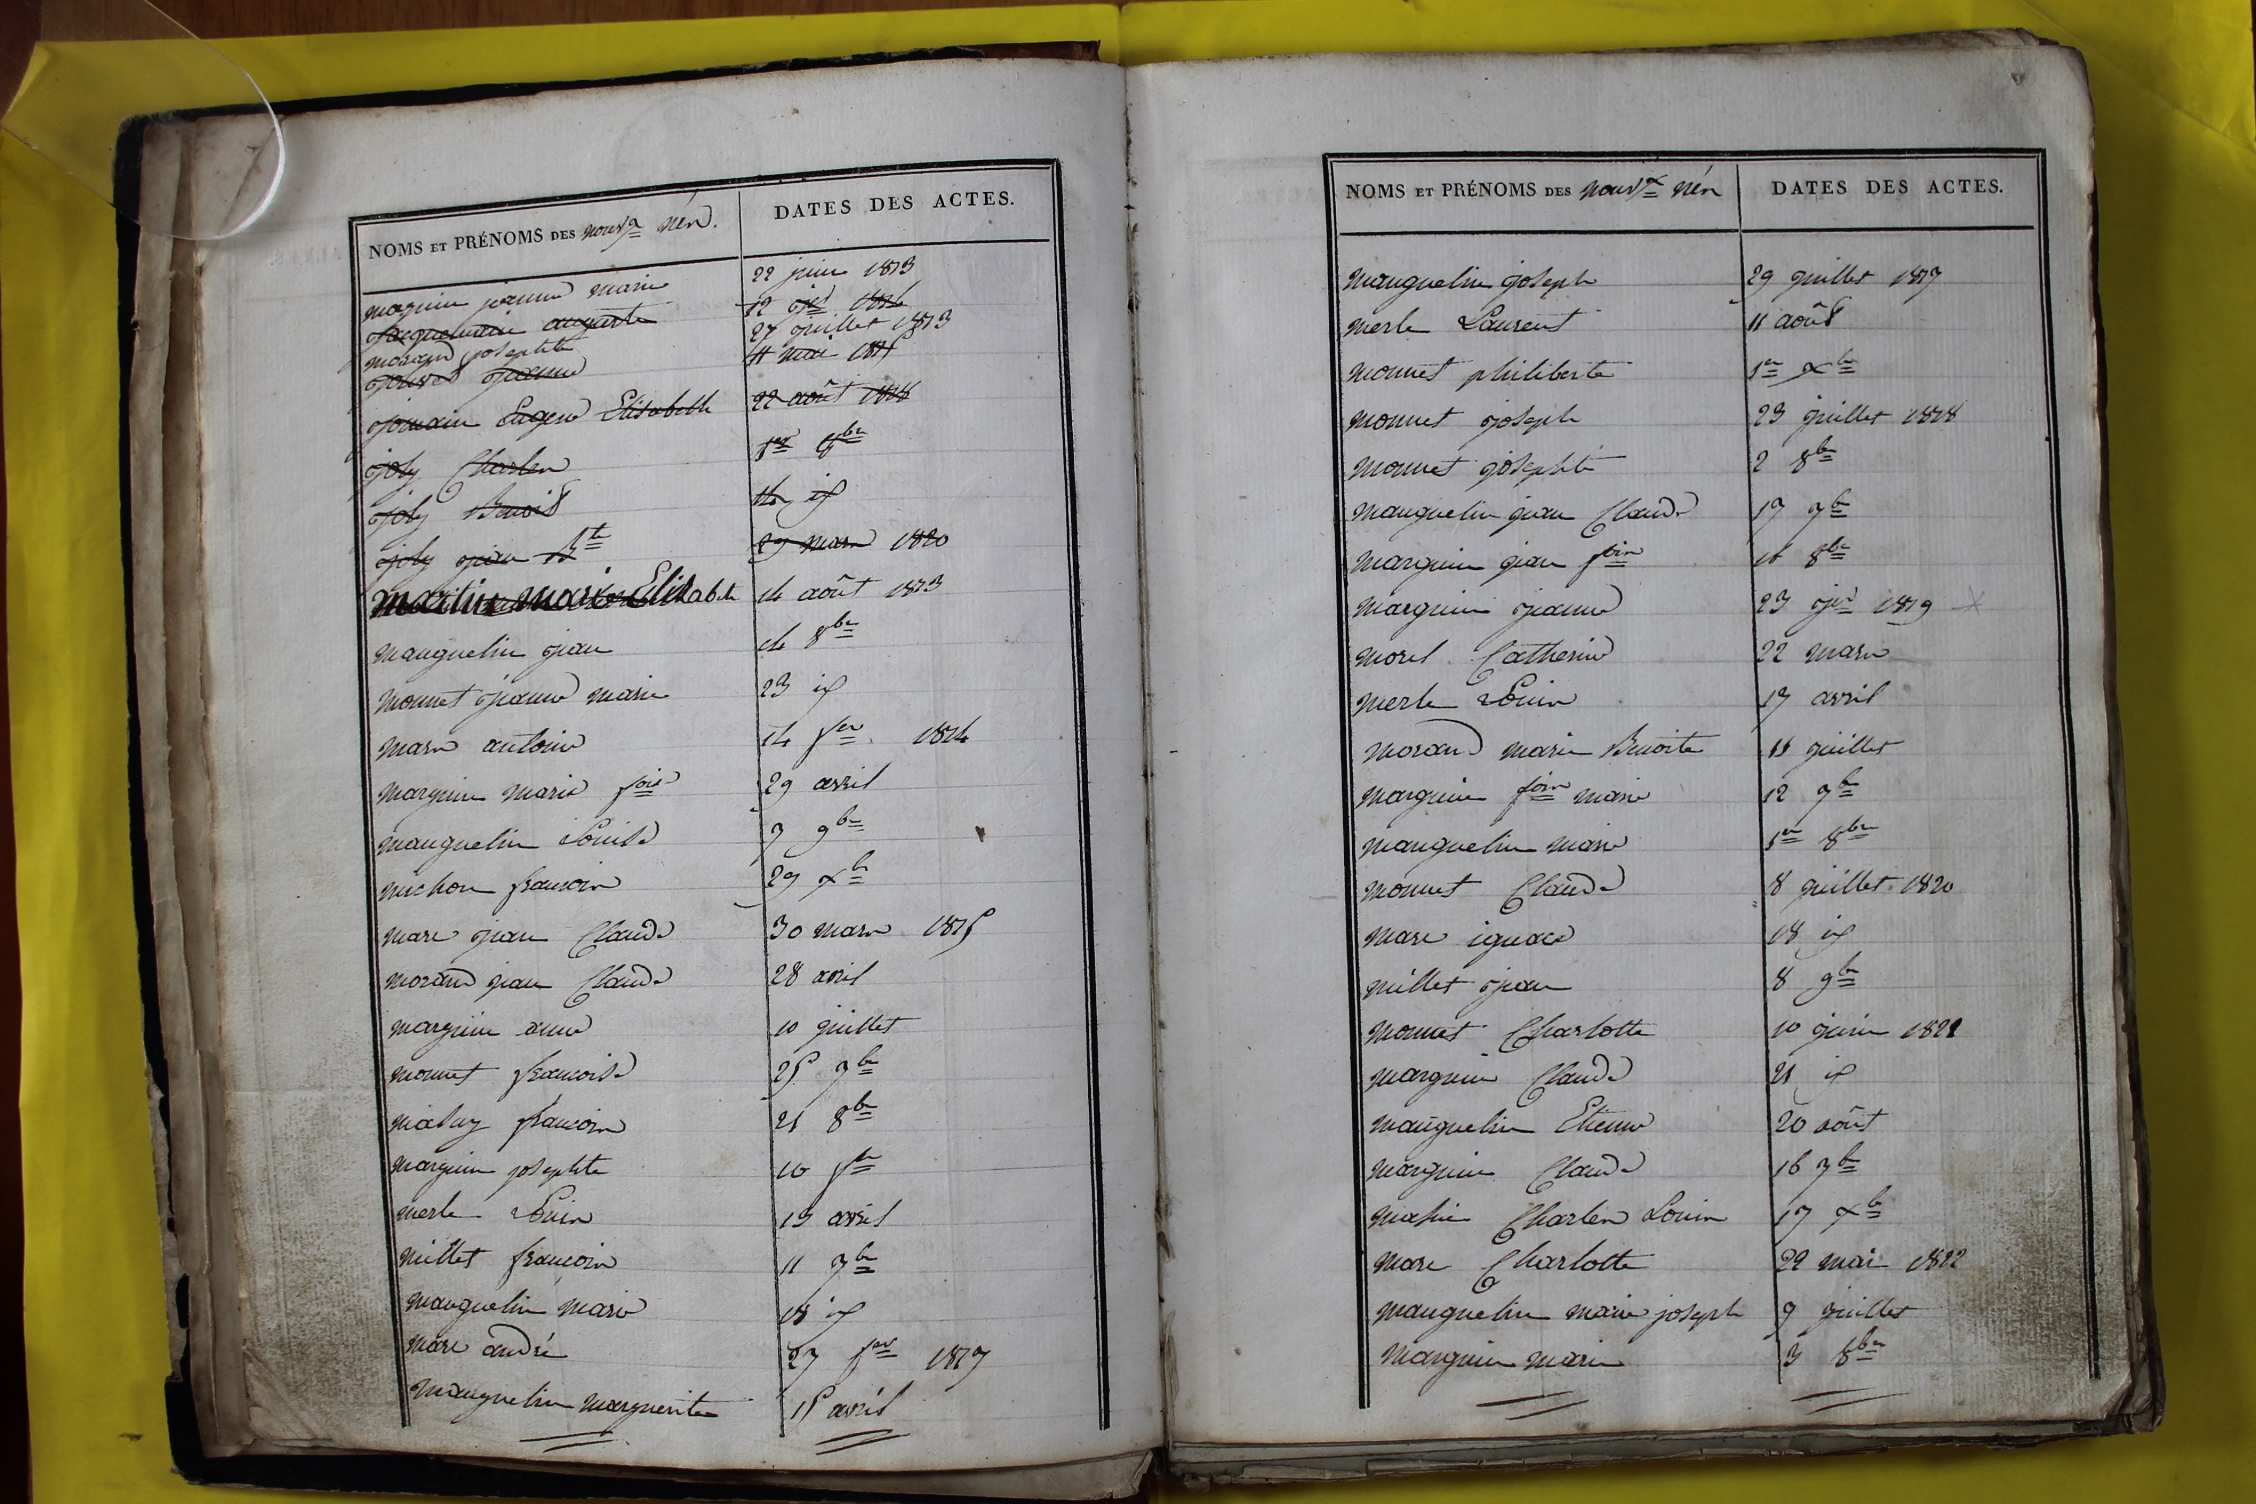 NOMS ET PRÉNOMS DES nouvx nés. DATES DES ACTES.
marguin jeanne marie 22 juin 1813
jacquemain auguste 12 jer 1816
morand josephte 27 juillet 1813
jeanne 11 mai 1815
jomain Eugene Elisabeth 22 août 1818
joly Charles 1er 8bre
joly Benoit 14 id
joly jean Bte 27 mars 1820
martin marie Elisabeth 14 août 1813
mauguelin jean 14 8bre
monnet jeanne marie 23 id
mars antoine 14 fer 1814
marguin marie foise 29 avril
mauguelin Louise 7 9bre
michon francois 29 xbre
marc jean Claude 30 mars 1815
morand jean Claude 28 avril
marguin anne 10 juillet
monnet francoise 25 7bre
francois 21 8bre
marguin josephte 10
merle Louis 13 avril
millet francois 11 7bre
mauguelin marie 18 id
marc andré 27 fer 1817
mauguelin marguerite 15 avril
NOMS ET PRÉNOMS DES nouvx nés DATES DES ACTES.
mauguelin joseph 29 juillet 1817
merle Laurent 11 août
monnet philiberte 1er xbre
monnet joseph 23 juillet 1818
monnet josephte 2 8bre
mauguelin jean Claude 17 7bre
marguin jean fois 16 8bre
marguin jeanne 23 jer 1819
morel Catherine 22 mars
merle Louis 17 avril
morand marie Benoite 11 juillet
marguin foise marie 12 7bre
mauguelin marie 1er 8bre
monnet Claude 8 juillet 1820
marc ignace 18 id
millet jean 8 9bre
monnet Charlotte 10 juin 1821
marguin Claude 21 id
mauguelin Etienne 20 août
marguin Claude 16 7bre
Charles Louis 17 xbre
marc Charlotte 22 mai 1822
mauguelin marie joseph 9 juillet
marguin marie 3 8bre